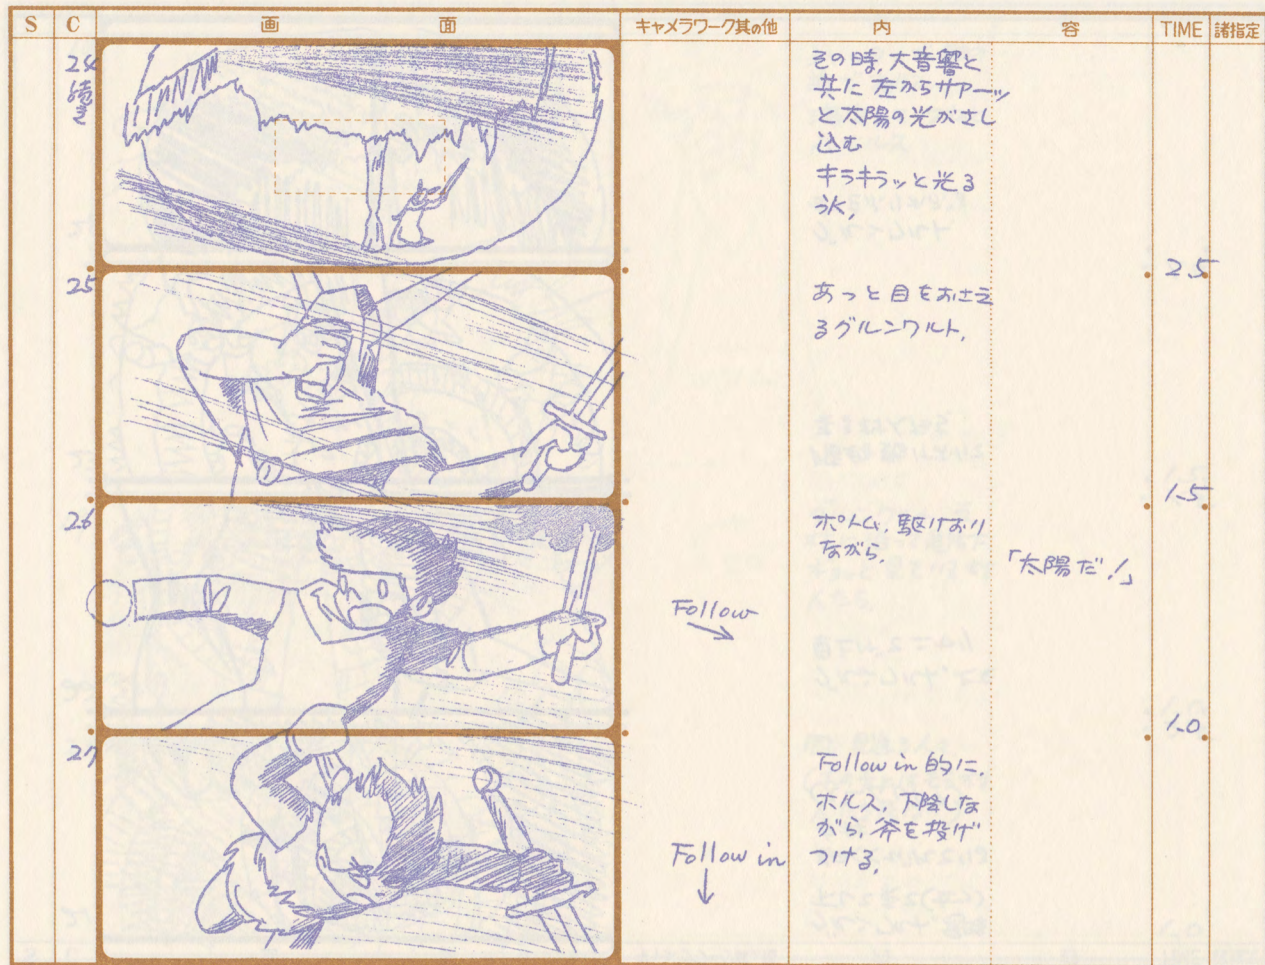 S C 画面 キャメラワーク其の他 内容 TIME 諸指定
24
続き
その時、大音響と
共に左からサアーッ
と太陽の光がさし
込む
キラキラッと光る
氷、
2.5
25
あっと目をおさえ
るグルンワルト、
1.5
26
ポトム、駆けおり
ながら、
「太陽だ!」
Follow
1.0
27
Follow in 的に、
ホルス、下降しな
がら、斧を投げ
つける、
Follow in